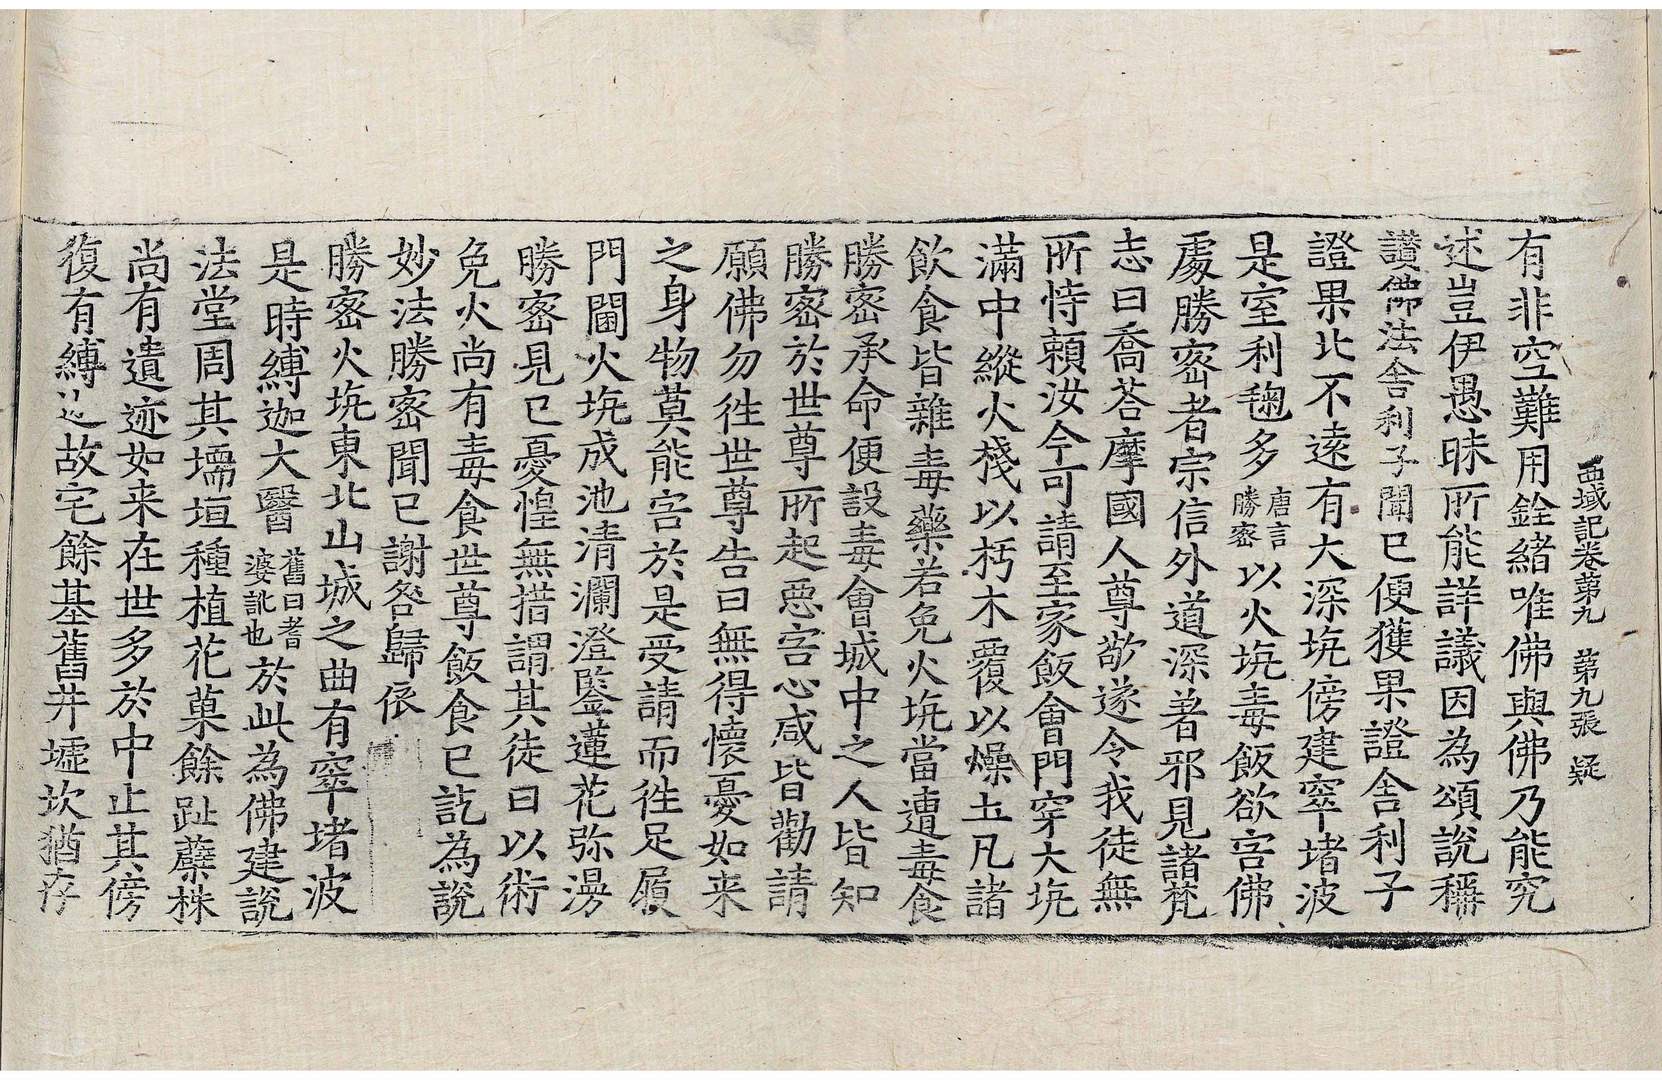 西域記卷第九　第九張　疑
有非空難用銓緒唯佛與佛乃能究
述豈伊愚昧所能詳議因為頌說稱
讚佛法舍利子聞已便獲果證舍利子
證果北不遠有大深坑傍建窣堵波
是室利毱多唐言勝密以火坑毒飯欲害佛
處勝密者宗信外道深著邪見諸梵
志曰喬荅摩國人尊敬遂令我徒無
所恃賴汝今可請至家飯會門穿大坑
滿中縱火棧以朽木覆以燥土凡諸
飲食皆雜毒藥若免火坑當遭毒食
勝密承命便設毒會城中之人皆知
勝密於世尊所起惡害心咸皆勸請
願佛勿往世尊告曰無得懷憂如来
之身物莫能害於是受請而往足履
門閫火坑成池清瀾澄鑒蓮花弥漫
勝密見已憂惶無措謂其徒曰以術
免火尚有毒食世尊飯食已訖為說
妙法勝密聞已謝咎歸依
勝密火坑東北山城之曲有窣堵波
是時縛迦大醫舊曰耆婆訛也於此為佛建說
法堂周其壖垣種植花菓餘趾蘖株
尚有遺迹如来在世多於中止其傍
復有縛迦故宅餘基舊井墟坎猶存